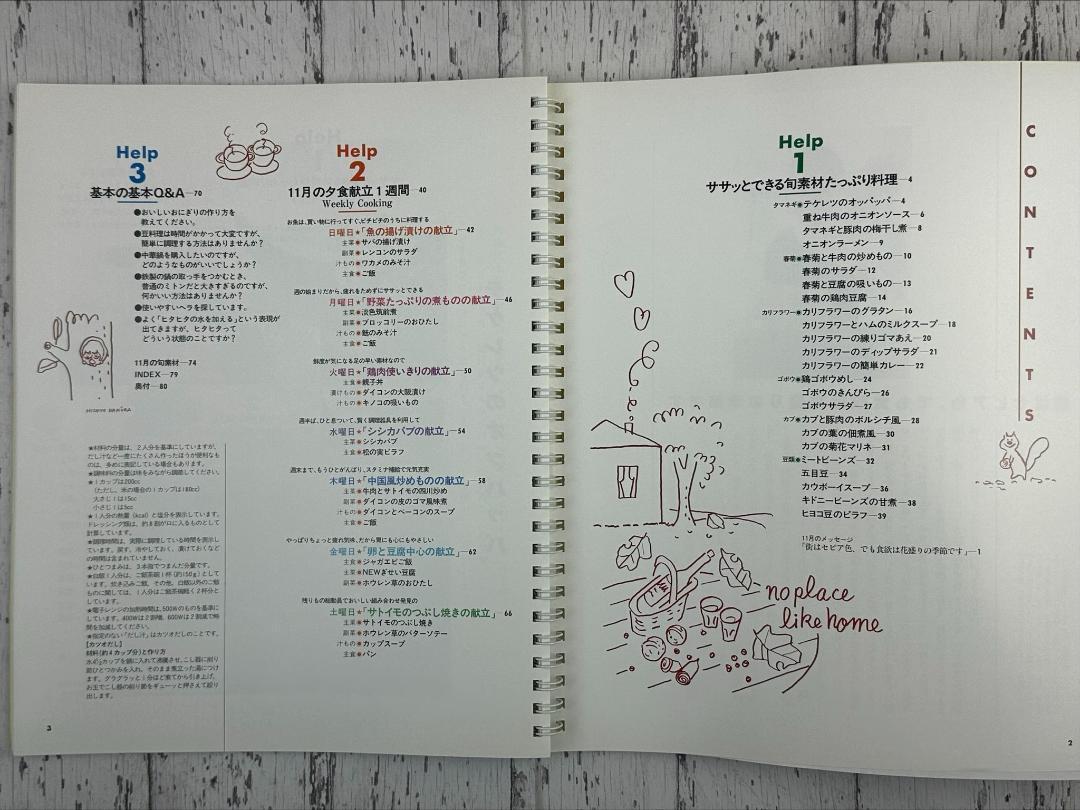 CONTENTS
Help
1
ササッとできる旬素材たっぷり料理—4
タマネギ●テケレツのオッパッパ—4
重ね牛肉のオニオンソース—6
タマネギと豚肉の梅干し煮—8
オニオンラーメン—9
春菊●春菊と牛肉の炒めもの—10
春菊のサラダ—12
春菊と豆腐の吸いもの—13
春菊の鶏肉豆腐—14
カリフラワー●カリフラワーのグラタン—16
カリフラワーとハムのミルクスープ—18
カリフラワーの練りゴマあえ—20
カリフラワーのディップサラダ—21
カリフラワーの簡単カレー—22
ゴボウ●鶏ゴボウめし—24
ゴボウのきんぴら—26
ゴボウサラダ—27
カブ●カブと豚肉のボルシチ風—28
カブの葉の佃煮風—30
カブの菊花マリネ—31
豆類●ミートビーンズ—32
五目豆—34
カウボーイスープ—36
キドニービーンズの甘煮—38
ヒヨコ豆のピラフ—39
11月のメッセージ
「街はセピア色、でも食欲は花盛りの季節です」—1
no place
like home
2
Help
2
11月の夕食献立1週間—40
Weekly Cooking
お魚は、買い物に行ってすぐ、ピチピチのうちに料理する
日曜日★「魚の揚げ漬けの献立」—42
主菜●サバの揚げ漬け
副菜●レンコンのサラダ
汁もの●ワカメのみそ汁
主食●ご飯
週の始まりだから、疲れをためずにササッとできる
月曜日★「野菜たっぷりの煮ものの献立」—46
主菜●淡色筑前煮
副菜●ブロッコリーのおひたし
汁もの●麩のみそ汁
主食●ご飯
鮮度が気になる足の早い素材なので
火曜日★「鶏肉使いきりの献立」—50
主食●親子丼
漬けもの●ダイコンの大阪漬け
汁もの●キノコの吸いもの
週半ば、ひと息ついて、賢く調理器具を利用して
水曜日★「シシカバブの献立」—54
主菜●シシカバブ
主食●松の実ピラフ
週末まで、もうひとがんばり、スタミナ補給で元気充実
木曜日★「中国風炒めものの献立」—58
主菜●牛肉とサトイモの四川炒め
副菜●ダイコンの皮のゴマ風味煮
汁もの●ダイコンとベーコンのスープ
主食●ご飯
やっぱりちょっと疲れ気味、だから胃にも心にもやさしい
金曜日★「卵と豆腐中心の献立」—62
主食●ジャガエビご飯
主菜●NEWぎせい豆腐
副菜●ホウレン草のおひたし
残りもの総動員でおいしい組み合わせ発見の
土曜日★「サトイモのつぶし焼きの献立」—66
主菜●サトイモのつぶし焼き
副菜●ホウレン草のバターソテー
汁もの●カップスープ
主食●パン
Help
3
基本の基本Q&A—70
●おいしいおにぎりの作り方を
教えてください。
●豆料理は時間がかかって大変ですが、
簡単に調理する方法はありませんか?
●中華鍋を購入したいのですが、
どのようなものがいいでしょうか?
●鉄製の鍋の取っ手をつかむとき、
普通のミトンだと大きすぎるのですが、
何かいい方法はありませんか?
●使いやすいヘラを探しています。
●よく「ヒタヒタの水を加える」という表現が
出てきますが、ヒタヒタって
どういう状態のことですか?
11月の旬素材—74
INDEX—79
奥付—80
★材料の分量は、2人分を基準にしていますが、
だし汁など一度にたくさん作ったほうが便利なも
のは、多めに表記している場合もあります。
★調味料の分量は味をみながら調節してください。
★1カップは200cc
(ただし、米の場合の1カップは180cc)
大さじ1は15cc
小さじ1は5cc
★1人分の熱量(kcal)と塩分を表示しています。
ドレッシング類は、約8割が口に入るものとして
計算しています。
★調理時間は、実際に調理している時間を表示し
ています。戻す、冷やしておく、漬けておくなど
の時間は含まれていません。
★ひとつまみは、3本指でつまんだ分量です。
★白飯1人分は、ご飯茶碗1杯(約150g)として
います。炊き込みご飯、その他、白飯以外のご飯
ものに関しては、1人分はご飯茶碗軽く2杯分と
しています。
★電子レンジの加熱時間は、500Wのものを基準に
しています。400Wは2割増、600Wは2割減で時
間を加減してください。
★指定のない「だし汁」はカツオだしのことです。
[カツオだし]
材料(約4カップ分)と作り方
カップを鍋に入れて沸騰させ、こし器に削り
節ひとつかみを入れ、そのまま煮立った湯につけ
ます。グラグラッと1分ほど煮てから引き上げ、
お玉でこし器の削り節をギューッと押さえて絞り
出します。
3